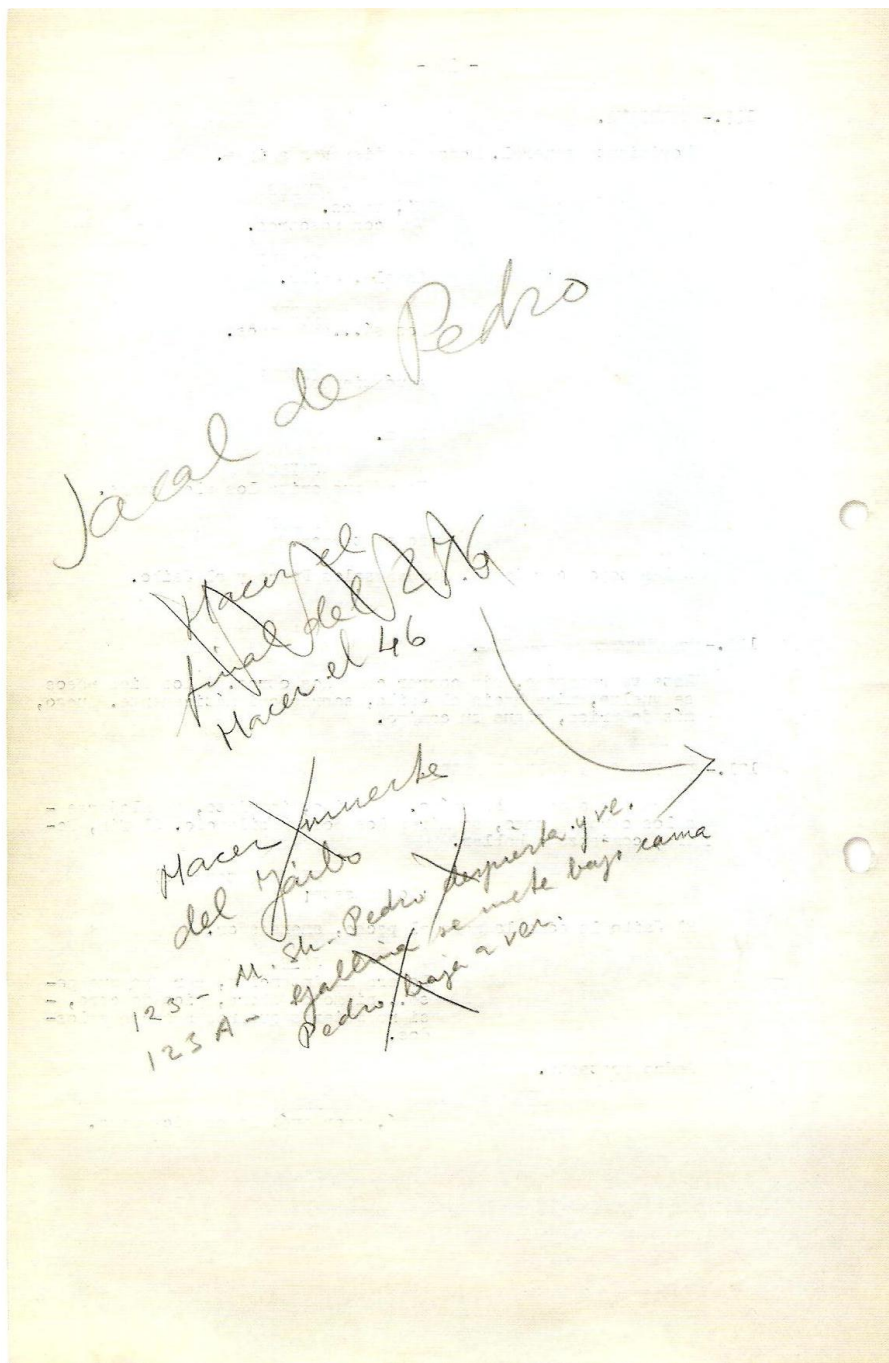 Jacal de Pedro
Hacer el
final del
Hacer el 46
Hacer muerte
del Jaibo
123 - M. Sh. Pedro despierta y ve.
123 A - gallina se mete bajo cama
Pedro baja a ver.